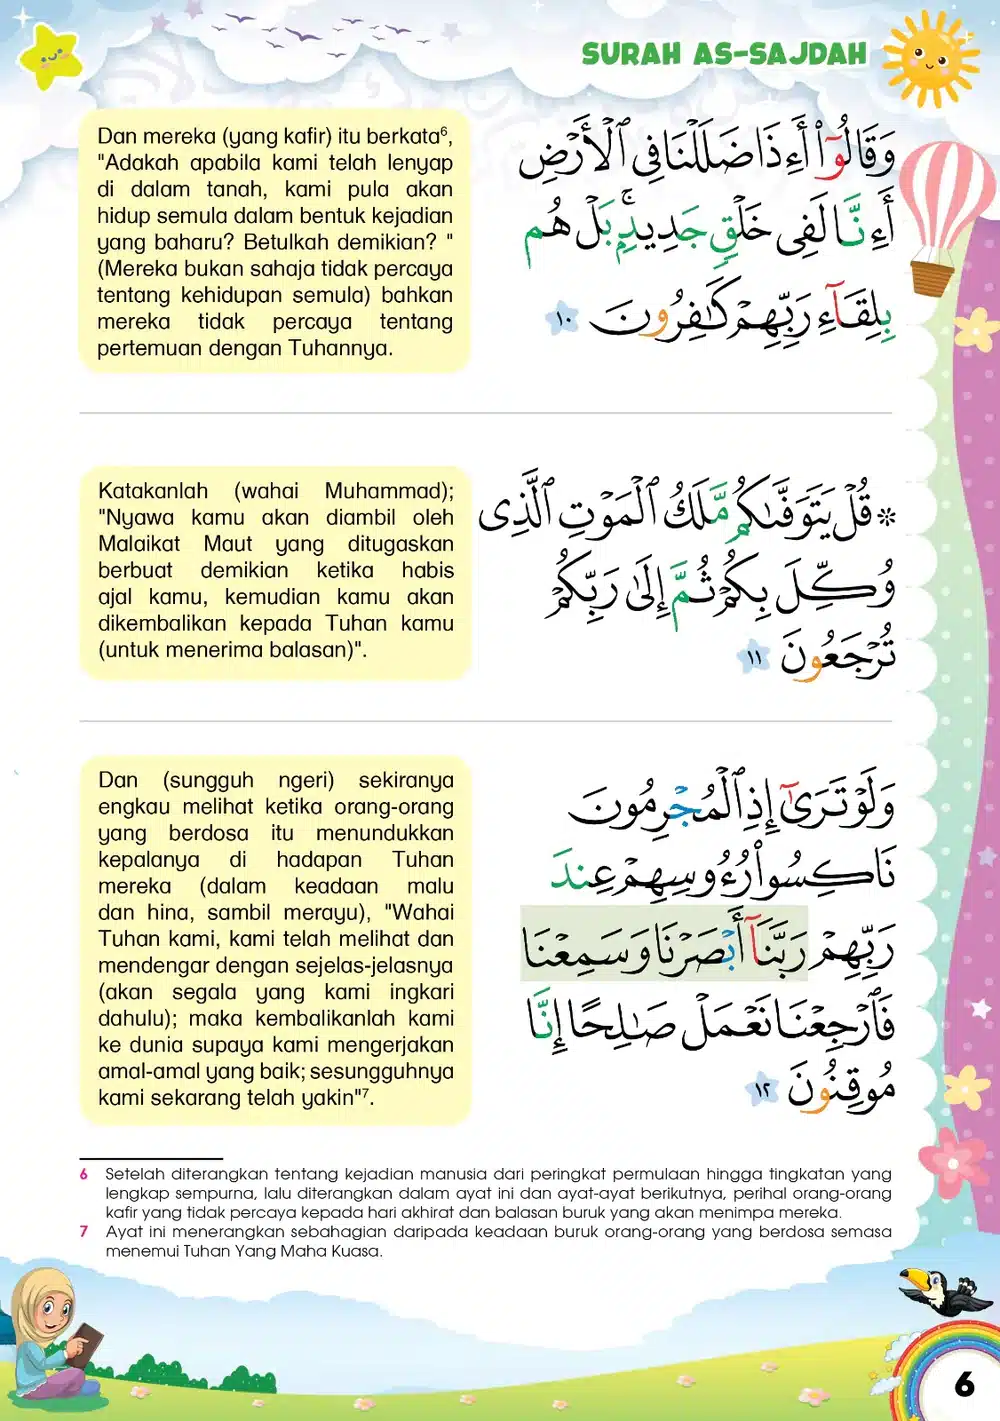 SURAH AS-SAJDAH
Dan mereka (yang kafir) itu berkata⁶,
"Adakah apabila kami telah lenyap
di dalam tanah, kami pula akan
hidup semula dalam bentuk kejadian
yang baharu? Betulkah demikian? "
(Mereka bukan sahaja tidak percaya
tentang kehidupan semula) bahkan
mereka tidak percaya tentang
pertemuan dengan Tuhannya.
وَقَالُوٓا۟ أَءِذَا ضَلَلْنَا فِى ٱلْأَرْضِ
أَءِنَّا لَفِى خَلْقٍ جَدِيدٍۭ ۚ بَلْ هُم
بِلِقَآءِ رَبِّهِمْ كَـٰفِرُونَ ١٠
Katakanlah (wahai Muhammad);
"Nyawa kamu akan diambil oleh
Malaikat Maut yang ditugaskan
berbuat demikian ketika habis
ajal kamu, kemudian kamu akan
dikembalikan kepada Tuhan kamu
(untuk menerima balasan)".
* قُلْ يَتَوَفَّىٰكُم مَّلَكُ ٱلْمَوْتِ ٱلَّذِى
وُكِّلَ بِكُمْ ثُمَّ إِلَىٰ رَبِّكُمْ
تُرْجَعُونَ ١١
Dan (sungguh ngeri) sekiranya
engkau melihat ketika orang-orang
yang berdosa itu menundukkan
kepalanya di hadapan Tuhan
mereka (dalam keadaan malu
dan hina, sambil merayu), "Wahai
Tuhan kami, kami telah melihat dan
mendengar dengan sejelas-jelasnya
(akan segala yang kami ingkari
dahulu); maka kembalikanlah kami
ke dunia supaya kami mengerjakan
amal-amal yang baik; sesungguhnya
kami sekarang telah yakin"⁷.
وَلَوْ تَرَىٰٓ إِذِ ٱلْمُجْرِمُونَ
نَاكِسُوا۟ رُءُوسِهِمْ عِندَ
رَبِّهِمْ رَبَّنَآ أَبْصَرْنَا وَسَمِعْنَا
فَٱرْجِعْنَا نَعْمَلْ صَـٰلِحًا إِنَّا
مُوقِنُونَ ١٢
6 Setelah diterangkan tentang kejadian manusia dari peringkat permulaan hingga tingkatan yang
lengkap sempurna, lalu diterangkan dalam ayat ini dan ayat-ayat berikutnya, perihal orang-orang
kafir yang tidak percaya kepada hari akhirat dan balasan buruk yang akan menimpa mereka.
7 Ayat ini menerangkan sebahagian daripada keadaan buruk orang-orang yang berdosa semasa
menemui Tuhan Yang Maha Kuasa.
6